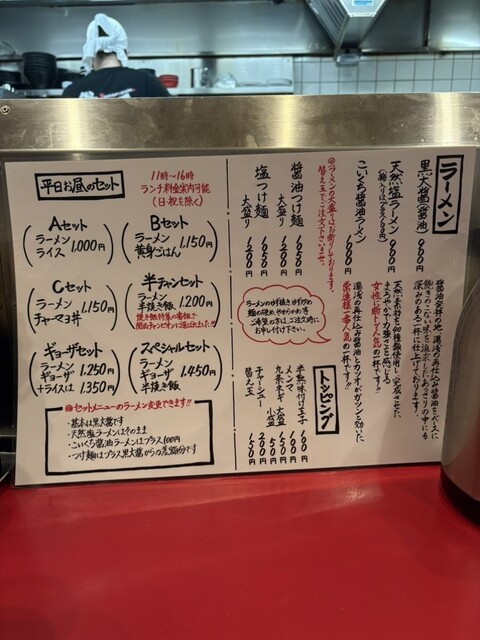 平日お昼のセット
11時〜16時
ランチ料金案内可能
(日・祝を除く)
Aセット
ラーメン
ライス
1,000円
Bセット
ラーメン
黄身ごはん
1,150円
Cセット
ラーメン
チャーマヨ丼
1,150円
半チャンセット
ラーメン
半焼き飯
1,200円
焼き飯特集の番組で
関西チャンピオンに選ばれました!!
ギョーザセット
ラーメン
ギョーザ
1,250円
+ライスは
1,350円
スペシャルセット
ラーメン
ギョーザ
半焼き飯
1,450円
@セットメニューのラーメン変更できます!!
・基本は黒大醤です
・天然塩ラーメンはそのまま
・こいくち醤油ラーメンはプラス100円
・つけ麺はプラス黒大醤からの差額分です
ラーメン
黒大醤(醤油) 900円
醤油発祥の地、湯浅の再仕込み醤油をベースに
飽きのこない味を追求したあっさりの中にも
深みのある一杯に仕上げております。
天然塩ラーメン 900円
天然素材を
まろやかで力強さを感じる
女性に断トツ人気の一杯です!!
こいくち醤油ラーメン 1,000円
湯浅の再仕込み醤油とカツオがガツンと効いた
常連様一番人気の一杯です!!
@ラーメンの大盛りはお断りしております。
替え玉でご注文下さいませ。
醤油つけ麺 1,050円
大盛り 1,200円
塩つけ麺 1,050円
大盛り 1,200円
ラーメンの
麺の硬め、やわらかめ等
ご希望の方は、ご注文時に
お申し付け下さい。
トッピング
半熟味付け玉子 100円
メンマ
九条ネギ 大盛
小盛
チャーシュー
替え玉